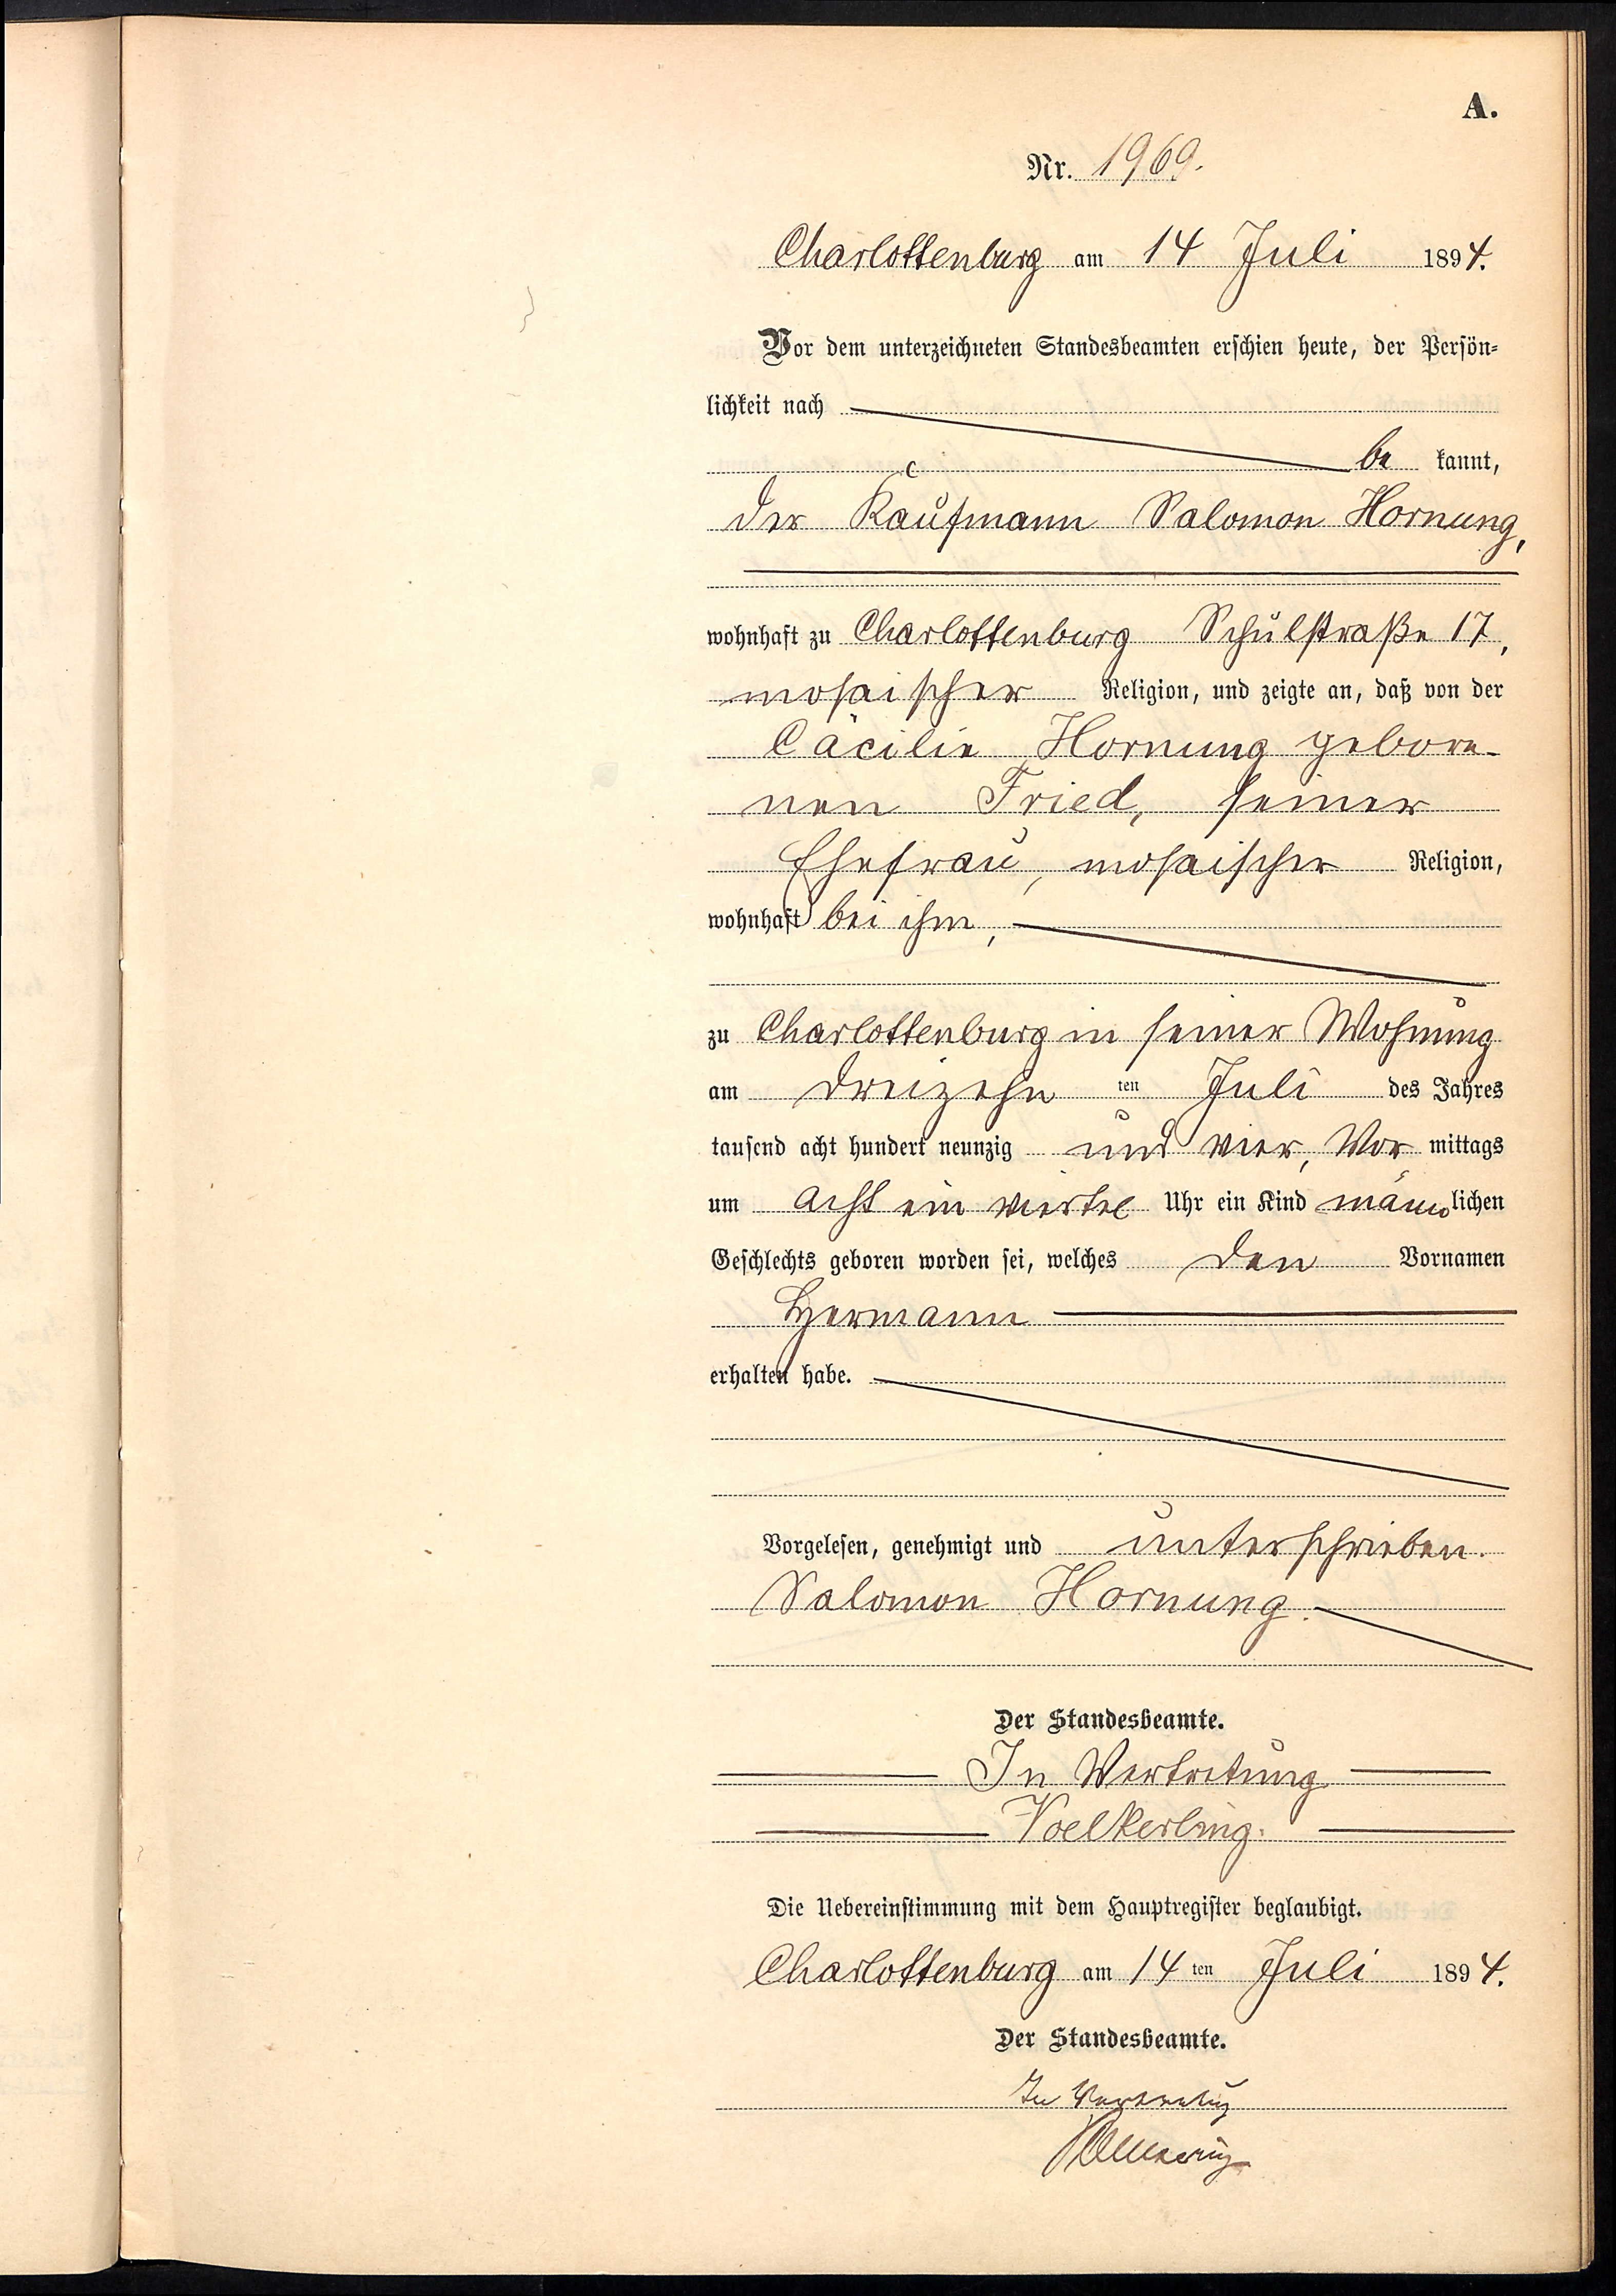 A.
Nr. 1969.
Charlottenburg am 14 Juli 1894.
Vor dem unterzeichneten Standesbeamten erschien heute, der Persön-
lichkeit nach
be kannt,
der Kaufmann Salomon Hornung,
wohnhaft zu Charlottenburg Schulstraße 17,
mosaischer Religion, und zeigte an, daß von der
Cäcilie Hornung gebore-
nen Fried, seiner
Ehefrau, mosaischer Religion,
wohnhaft bei ihm,
zu Charlottenburg in seiner Wohnung
am dreizehn ten Juli des Jahres
tausend acht hundert neunzig und vier, Vor mittags
um acht ein viertel Uhr ein Kind männlichen
Geschlechts geboren worden sei, welches den Vornamen
Hermann
erhalten habe.
Vorgelesen, genehmigt und unterschrieben.
Salomon Hornung.
Der Standesbeamte.
In Vertretung
Voelkerling.
Die Uebereinstimmung mit dem Hauptregister beglaubigt.
Charlottenburg am 14 ten Juli 1894.
Der Standesbeamte.
In Vertretung